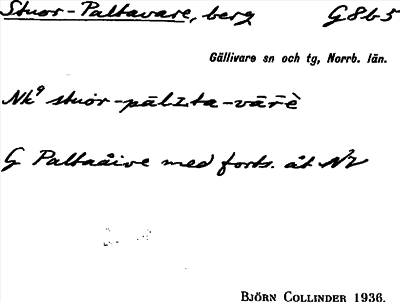 Stuor-Paltavare, berg G8b5
Gällivare sn och tg, Norrb. län.
Nk⁹ stuor-pālɪta-vārḕ
G Paltaåive med forts. åt NV
BJÖRN COLLINDER 1936.